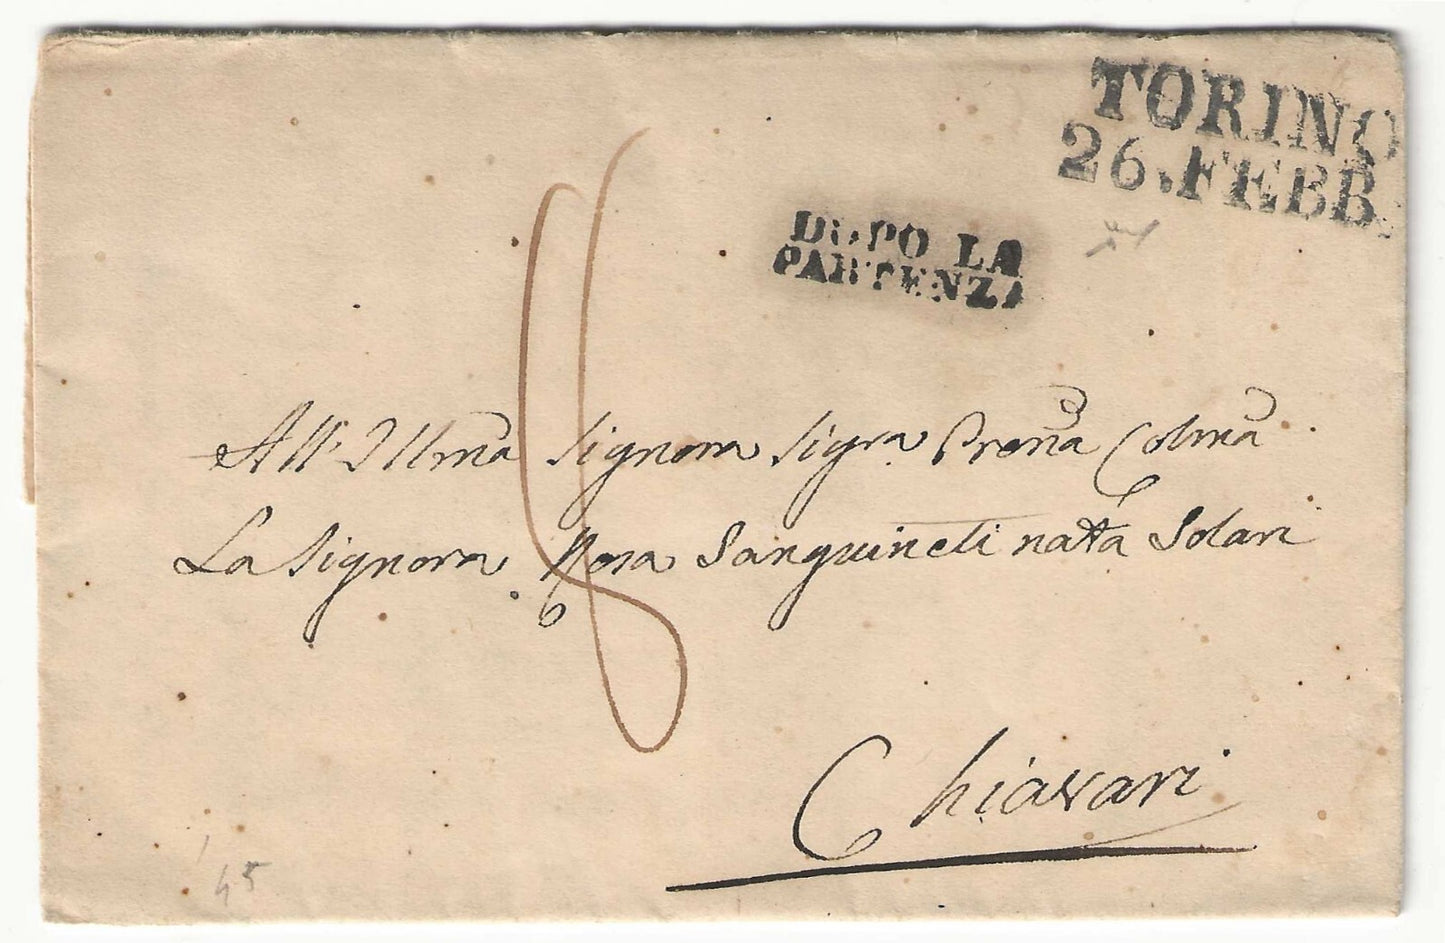 TORINO
26. FEBB.
DOPO LA
PARTENZA
All' Illma Signora Sigra Prena Colma
La Signora Rosa Sanguineti natta Solari
Chiavari
45